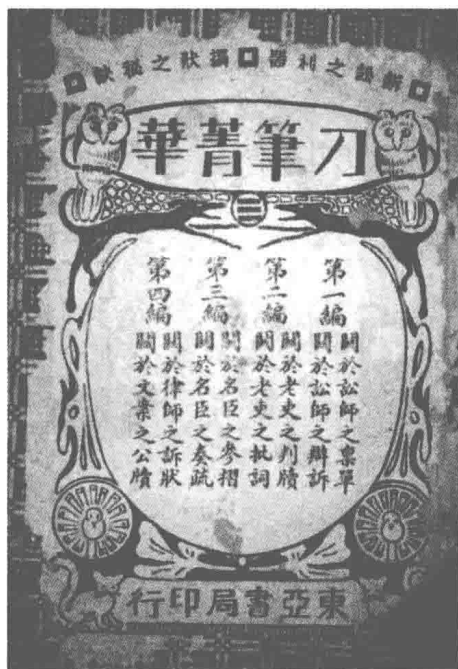 訟之利器 撰狀之
刀筆菁華
第一編
關於訟師之稟草
關於訟師之辯訴
第二編
關於老吏之判牘
關於老吏之批詞
第三編
關於名臣之參摺
關於名臣之奏疏
第四編
關於律師之訴狀
關於文案之公牘
東亞書局印行